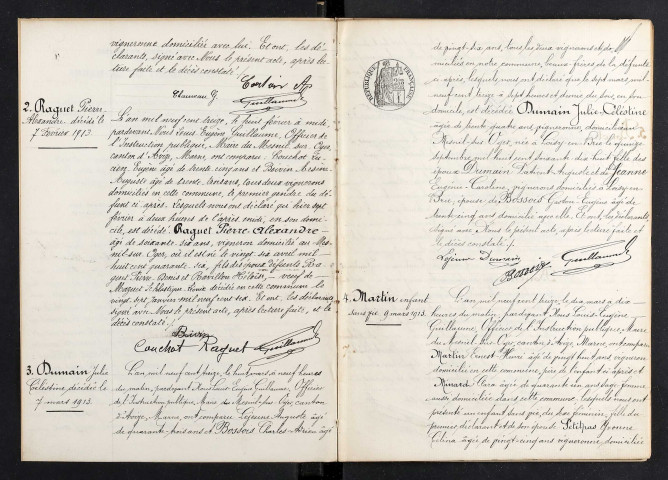 vigneronne domiciliée avec lui. Et ont, les dé-
clarants, signé avec Nous le présent acte, après lec-
ture faite et le décès constaté.
Guillaume
2. Raguet Pierre
Alexandre décédé le
7 février 1913.
L'an mil neuf cent treize, le huit février à midi,
pardevant Nous Louis Eugène Guillaume, Officier de
l'Instruction publique, Maire du Mesnil sur Oger,
canton d'Avize, Marne, ont comparu Couchot
Eugène âgé de trente cinq ans et
Auguste âgé de trente ans, tous deux vignerons
domiciliés en cette commune, le premier gendre du dé-
funt ci après. Lesquels nous ont déclaré que hier sept
février à deux heures de l'après midi, en son domi-
cile, est décédé Raguet Pierre Alexandre
âgé de soixante six ans, vigneron domicilié au Mes-
nil sur Oger, où il est né le vingt six avril mil
huit cent quarante six, fils des époux défunts Ra-
guet Pierre Denis et veuf de
décédée en cette commune le
vingt six janvier mil neuf cent six. Et ont, les déclarants
signé avec Nous le présent acte, après lecture faite, et le
décès constaté.
Couchot Raguet Guillaume
3. Dumain Julie
Célestine décédée le
7 mars 1913.
L'an mil neuf cent treize, le huit mars à neuf heures
du matin, pardevant Nous Louis Eugène Guillaume, Officier
de l'Instruction publique, Maire du Mesnil sur Oger, canton
d'Avize, Marne, ont comparu Lejeune Auguste âgé
de quarante trois ans et Bossois Charles Adrien âgé
RÉPUBLIQUE FRANÇAISE
de vingt six ans, tous les deux vignerons et do-
miciliés en notre commune, beaux-frères de la défunte
ci après, lesquels nous ont déclaré que le sept mars mil
neuf cent treize à sept heures et demie du soir, en son
domicile, est décédée Dumain Julie Célestine
âgée de quarante quatre ans, vigneronne, domiciliée au
Mesnil sur Oger, née à Loisy en Brie le quinze
septembre mil huit cent soixante dix huit, fille des
époux Dumain Auguste et de Jeanne
Eugénie Caroline, vignerons domiciliés à Loisy en
Brie, épouse de Bossois Gaston Eugène âgé de
trente cinq ans domicilié avec elle. Et ont, les déclarants
signé avec Nous le présent acte, après lecture faite et
le décès constaté.
Lejeune Dumain
Bossois Guillaume
4. Martin enfant
sans vie 9 mars 1913.
L'an mil neuf cent treize, le dix mars à dix
heures du matin, pardevant Nous Louis Eugène
Guillaume, Officier de l'Instruction publique, Maire
du Mesnil sur Oger, canton d'Avize, Marne, ont comparu
Martin Ernest Henri âgé de vingt huit ans vigneron
domicilié en cette commune, père de l'enfant ci après et
Minard Clara âgée de quarante un ans sage femme
aussi domiciliée dans cette commune, lesquels nous ont
présenté un enfant sans vie, du sexe féminin, fille du
premier déclarant et de son épouse Petitpas Yvonne
Célina âgée de vingt cinq ans vigneronne domiciliée